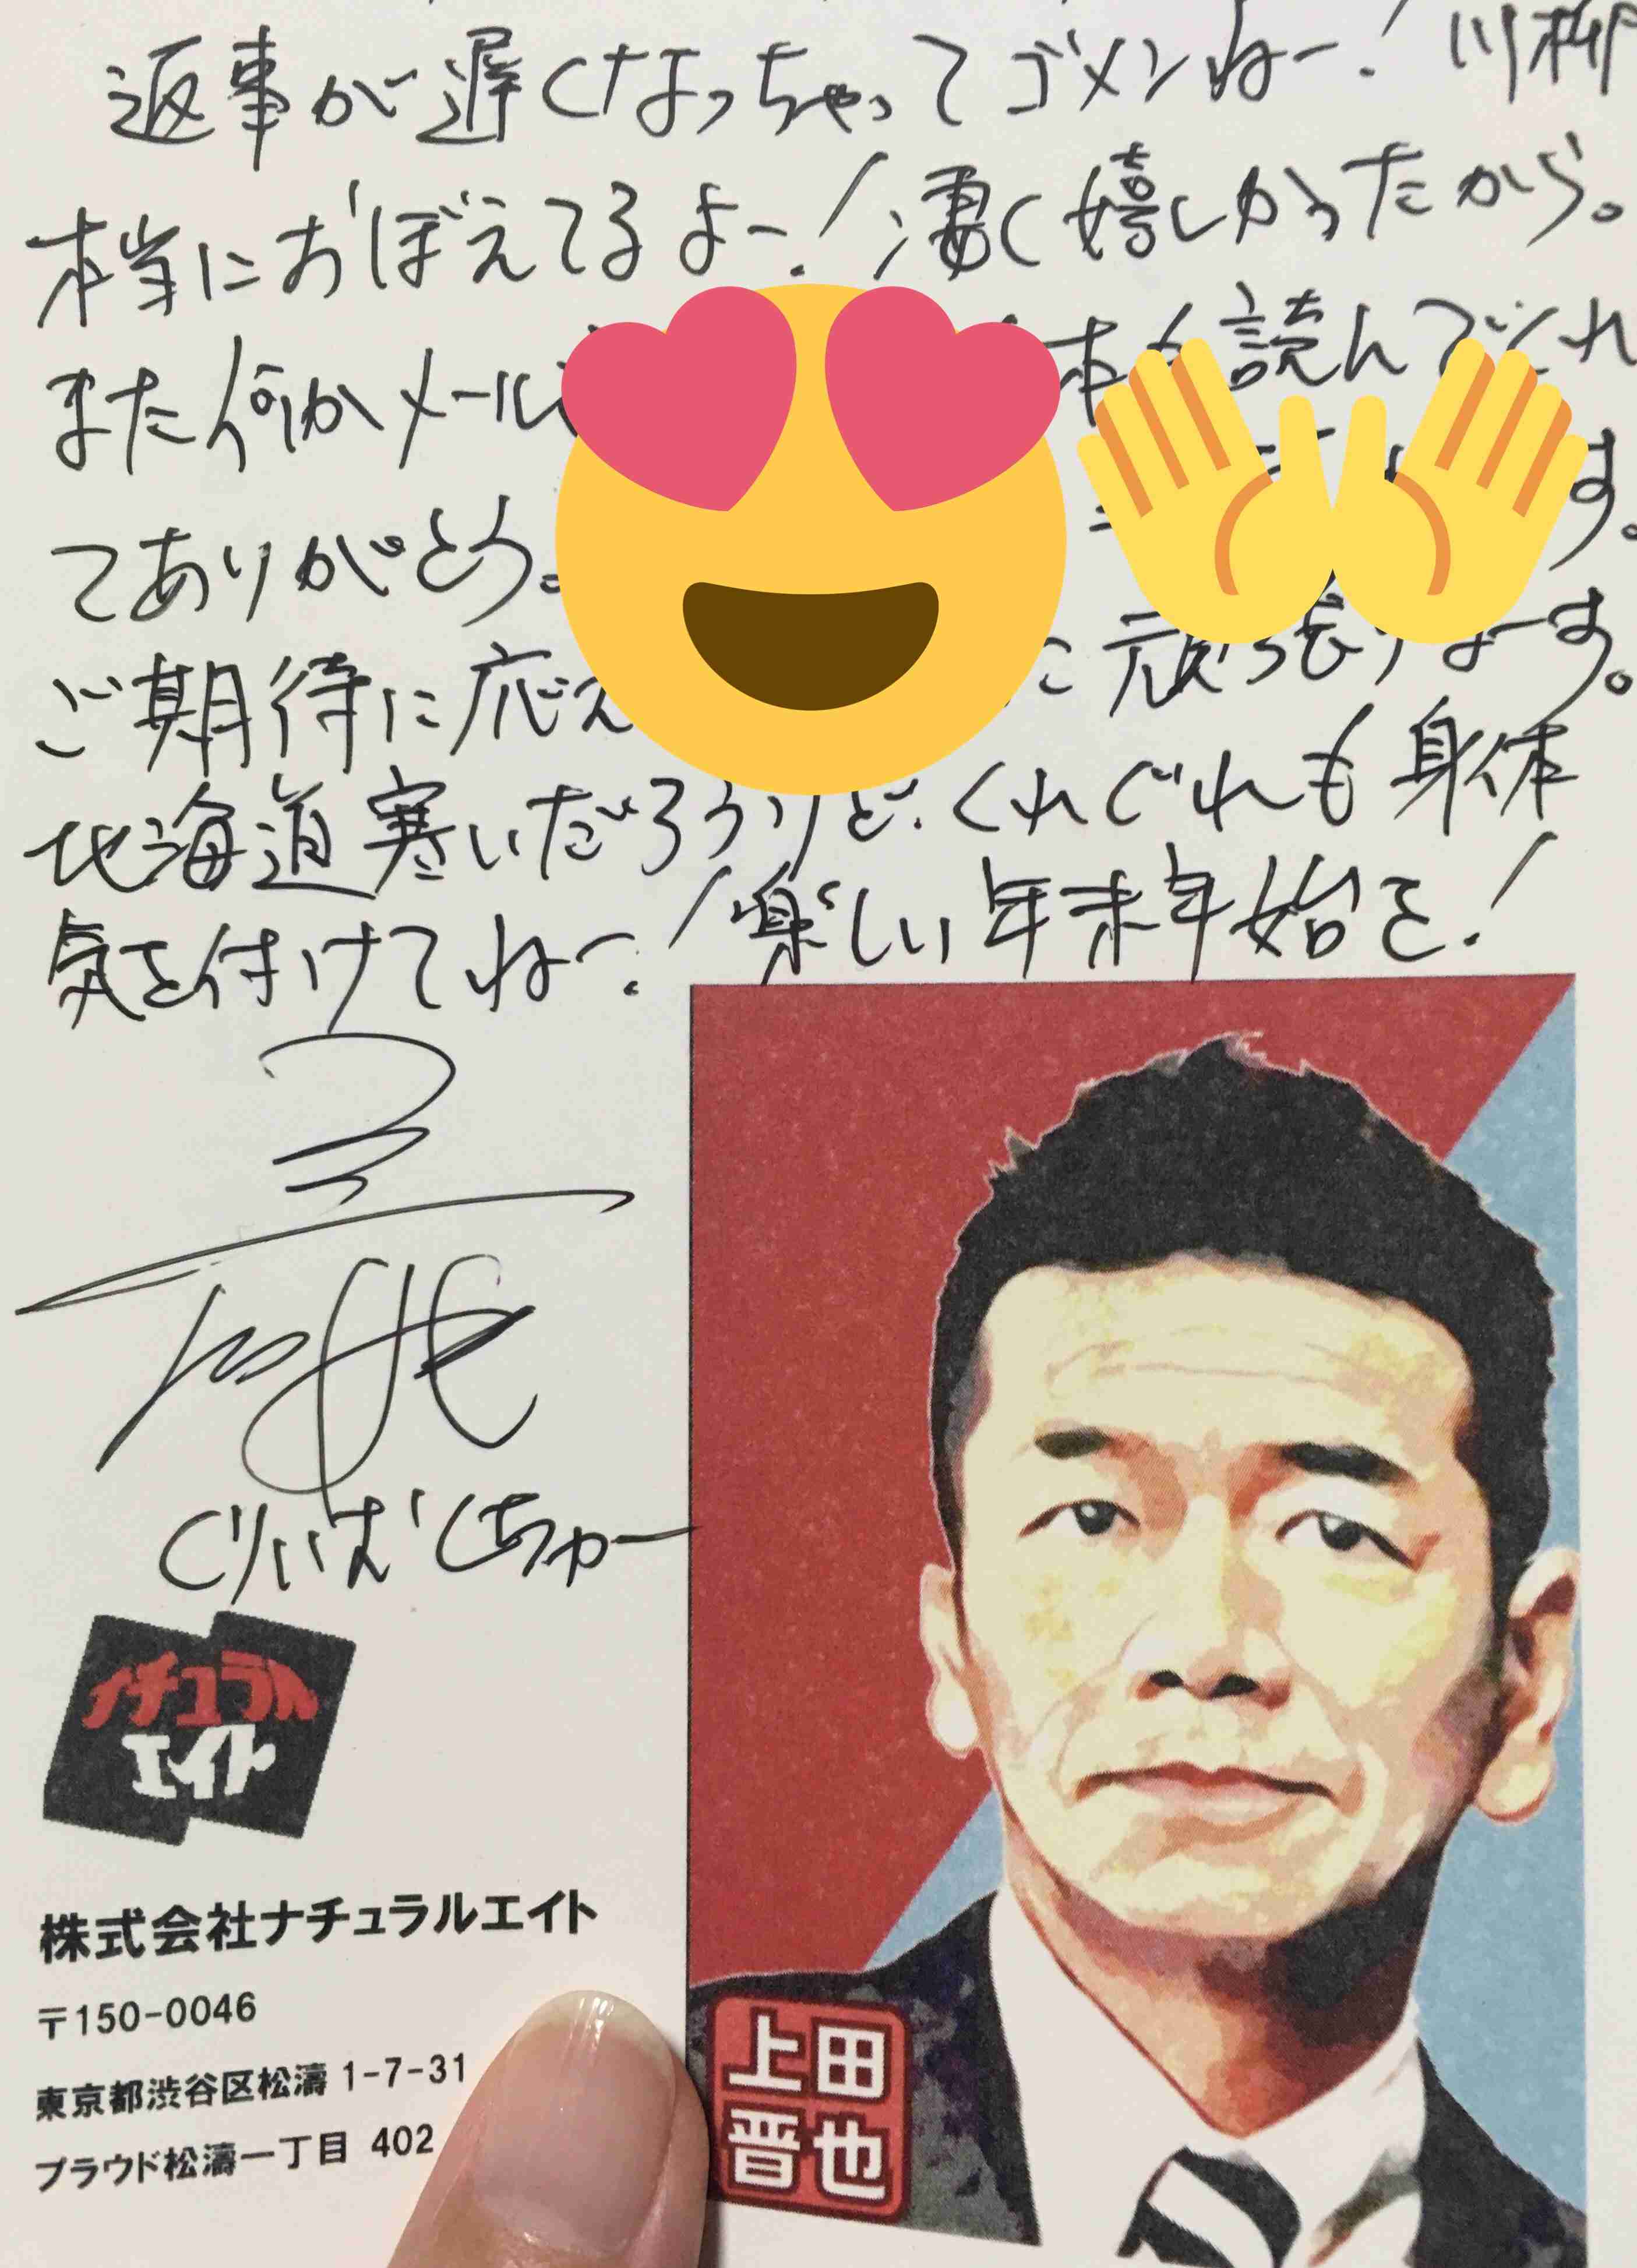 返事が遅くなっちゃってゴメンねー!川柳
本当におぼえてるよー!凄く嬉しかったから。
また何かメール
本も読んでくれ
てありがとう。
す。
ご期待に応え
に頑張りまーす。
北海道寒いだろうけど、くれぐれも身体
気を付けてねー!楽しい年末年始を!
くりぃむしちゅー
ナチュラル
エイト
株式会社ナチュラルエイト
〒150-0046
東京都渋谷区松濤 1-7-31
プラウド松濤一丁目 402
上田
晋也